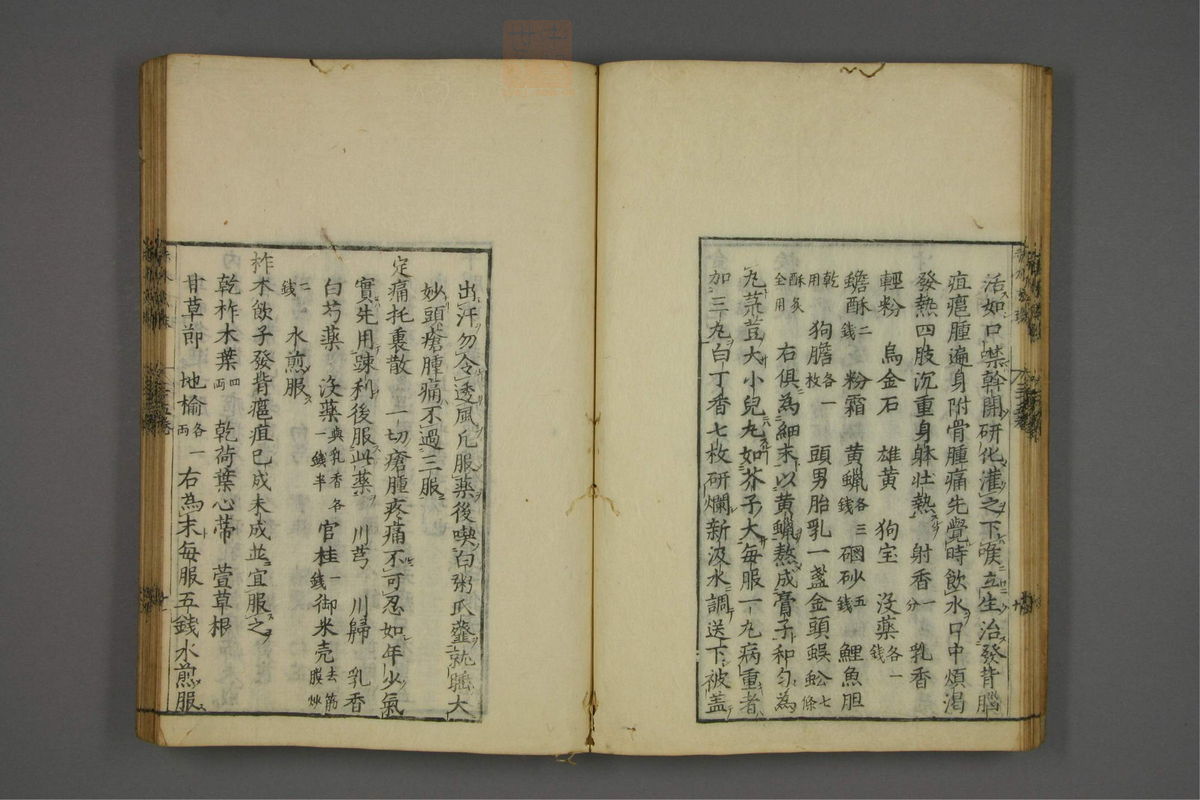 活如口禁幹開研化灌之下喉立生治發背腦
疽瘟腫遍身附骨腫痛先覺時飲水口中煩渴
發熱四肢沉重身躰壮熱 射香一分 乳香
輕粉 烏金石 雄黄 狗宝 没薬各一錢
蟾酥二錢 粉霜 黄蝋各三錢 硇砂五錢 鯉魚胆
乾用 狗膽各一枚 頭男胎乳一盞金頭蜈蚣七條
酥炙全用 右俱為細末以黄蝋熬成膏子和匀為
丸菉荳大小兒丸如芥子大毎服一丸病重者
加三丸白丁香七枚研爛新汲水調送下被盖
出汗勿令透風凢服薬後喫白粥瓜虀就睡大
妙頭瘡腫痛不過三服
定痛托裏散 一切瘡腫疼痛不可忍如年少氣
實先用踈利後服此薬 川芎 川歸 乳香
白芍薬 没薬與乳香各一錢半 官桂一錢 御米壳去筋膜炒
二錢 水煎服
柞木飲子發背瘟疽已成未成並宜服之
乾柞木葉四両 乾荷葉心蒂 萱草根
甘草節 地榆各一両 右為末毎服五錢水煎服